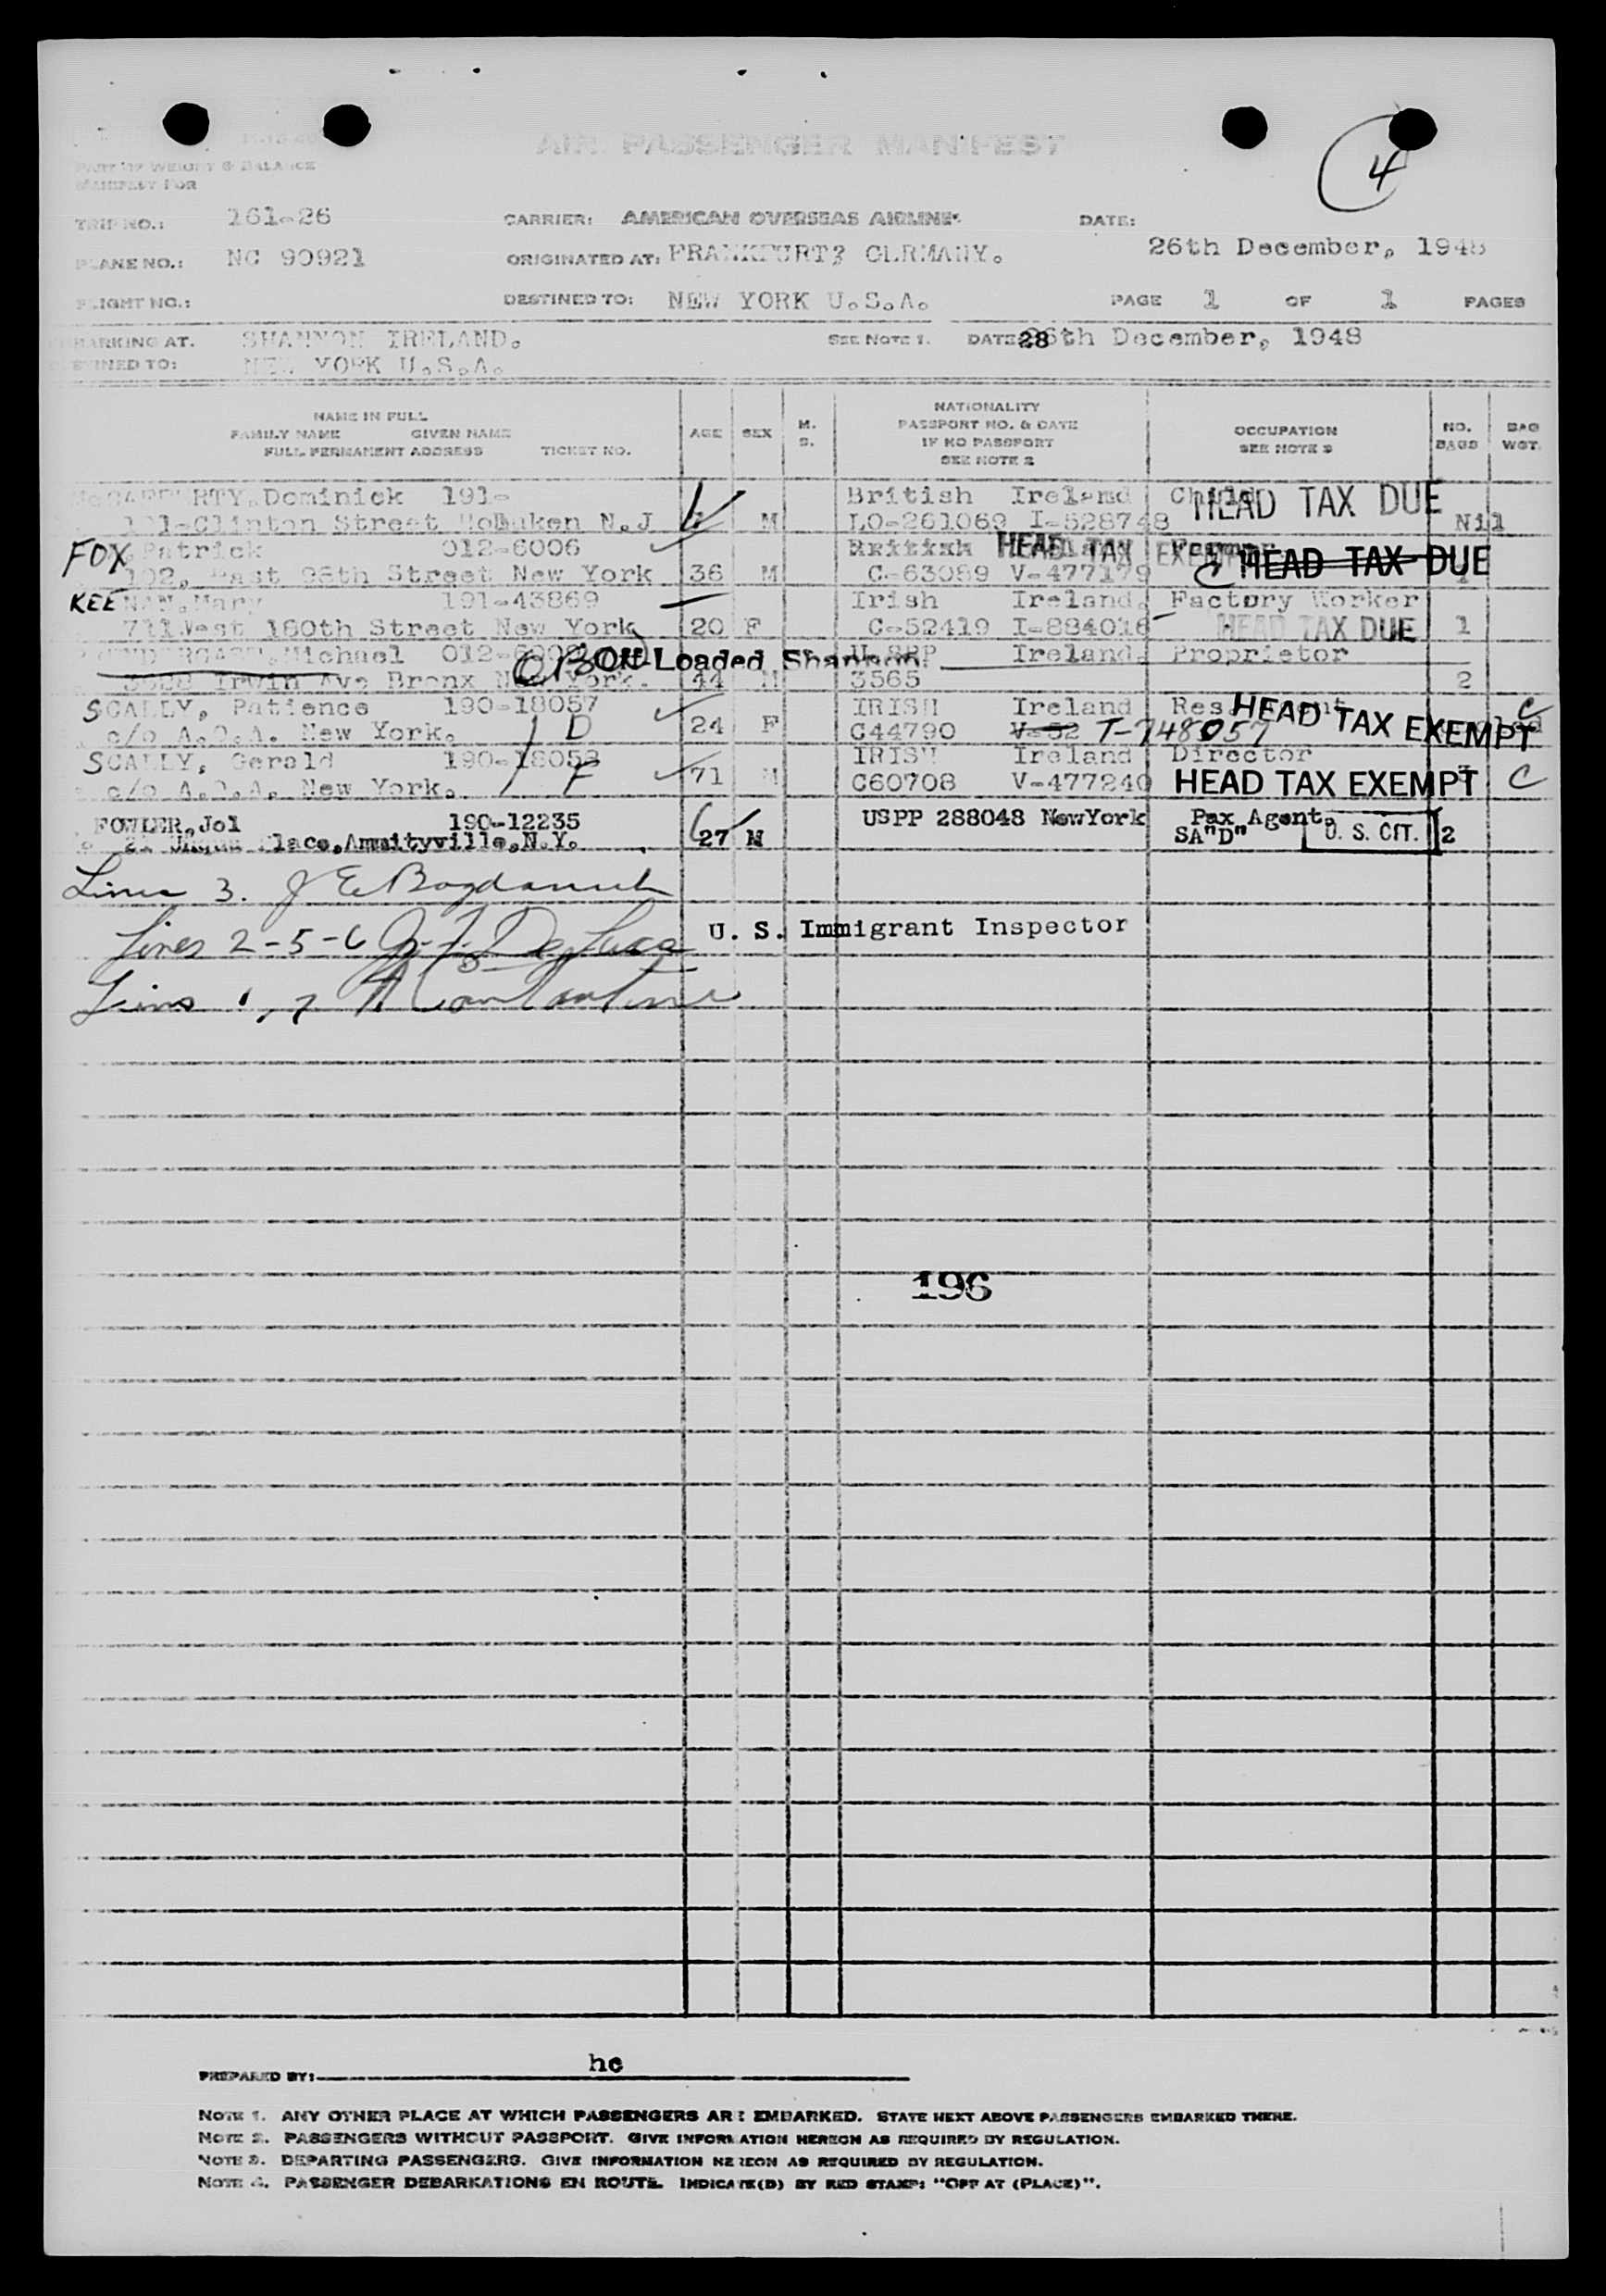 AIR PASSENGER MANIFEST
4
PART OF WEIGHT & BALANCE
MANIFEST FOR
TRIP NO.: 161-26 CARRIER: AMERICAN OVERSEAS AIRLINES DATE: 26th December, 1948
PLANE NO.: NC 90921 ORIGINATED AT: FRANKFURT; GERMANY.
FLIGHT NO.: DESTINED TO: NEW YORK U.S.A. PAGE 1 OF 1 PAGES
EMBARKING AT. SHANNON IRELAND. SEE NOTE 1. DATE 28th December, 1948
DESTINED TO: NEW YORK U.S.A.
NAME IN FULL
FAMILY NAME GIVEN NAME
FULL PERMANENT ADDRESS TICKET NO.
AGE SEX M. S.
NATIONALITY
PASSPORT NO. & DATE
IF NO PASSPORT
SEE NOTE 2
OCCUPATION
SEE NOTE 3
NO. BAGS
BAG WGT.
McCAFFERTY, Dominick 191- British Ireland Child HEAD TAX DUE
Clinton Street Hobuken N.J M LO-261069 I-528748 Nil
FOX Patrick 012-6006 British HEAD TAX EXEMPT Farmer
102, East 96th Street New York 36 M C-63089 V-477179 C HEAD TAX DUE
KEENAN, Mary 191-43869 Irish Ireland. Factory Worker
711 West 180th Street New York 20 F C-52419 I-884016 HEAD TAX DUE 1
Michael Off-Loaded Shannon. Ireland. Proprietor
Irwin Ave Bronx New York. 44 M 3565 2
SCALLY, Patience 190-18057 IRISH Ireland HEAD TAX EXEMPT C
c/o A.O.A. New York. D 24 F C44790 V-52 T-748057
SCALLY, Gerald 190-18058 IRISH Ireland Director
c/o A.O.A. New York. F 71 M C60708 V-477240 HEAD TAX EXEMPT C
FOWLER, Jol 190-12235 USPP 288048 NewYork Pax Agent,
Place, Ammityville, N.Y. 27 M SA"D" U. S. CIT. 2
Lines 3.
Lines 2-5-6
U. S. Immigrant Inspector
Lines 1, 7
196
PREPARED BY: hc
NOTE 1. ANY OTHER PLACE AT WHICH PASSENGERS ARE EMBARKED. STATE NEXT ABOVE PASSENGERS EMBARKED THERE.
NOTE 2. PASSENGERS WITHOUT PASSPORT. GIVE INFORMATION HEREON AS REQUIRED BY REGULATION.
NOTE 3. DEPARTING PASSENGERS. GIVE INFORMATION HEREON AS REQUIRED BY REGULATION.
NOTE 4. PASSENGER DEBARKATIONS EN ROUTE. INDICATE(D) BY RED STAMP: "OFF AT (PLACE)".